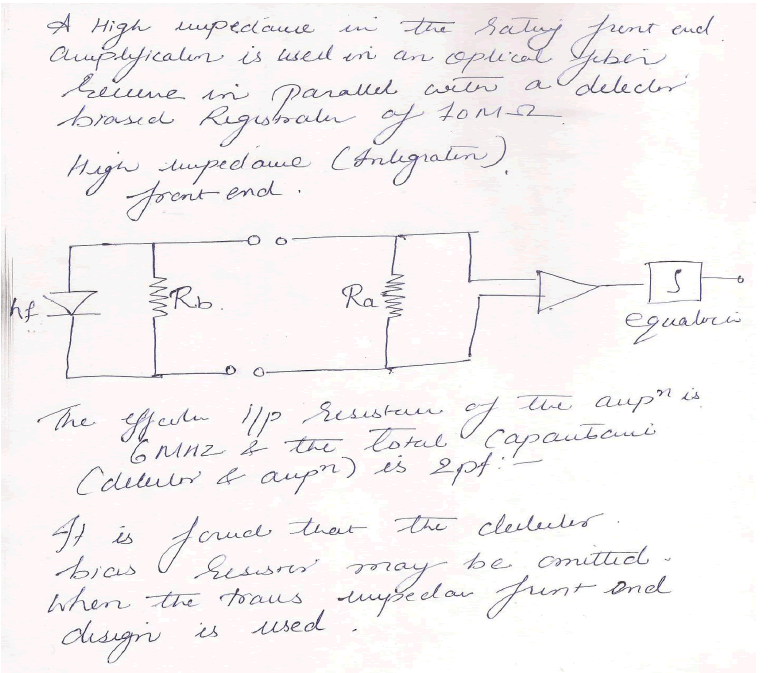 A High impedance in the rating front end
amplification is used in an optical fiber
Receive in parallel with a detector
biased Registrater of 10MΩ
High impedance (Integration)
front end.
hf
Rb
Ra
∫
The effective i/p resistance of the ampⁿ is
6 MHZ & the total Capacitance
(detector & ampⁿ) is 2pf:-
It is found that the detector
bias resistor may be omitted.
When the trans impedan front end
design is used.